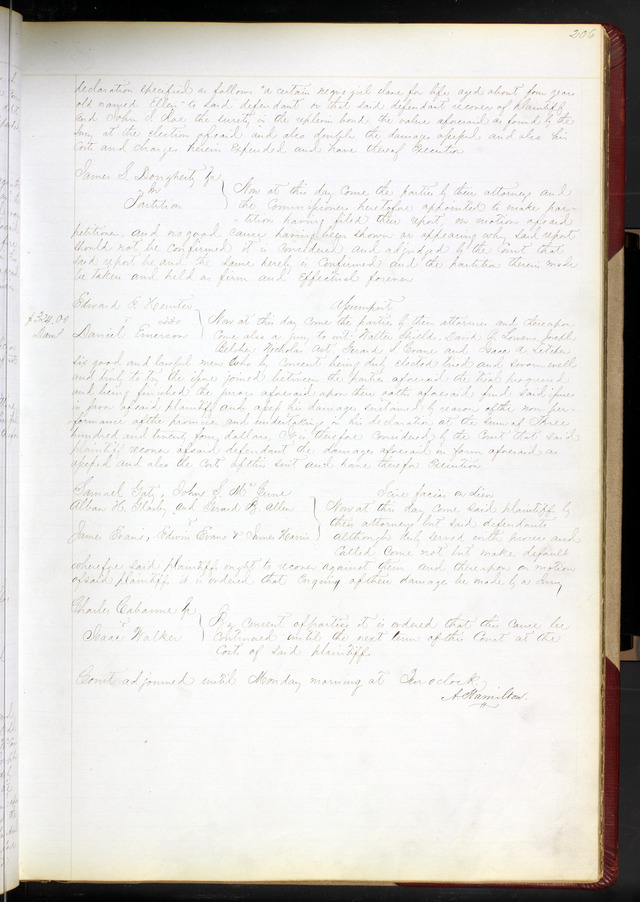 206
declaration specified as follows "a certain negro girl slave for life aged about four years
old named Ellen" to said defendant or that said defendant recover of plaintiff
and John S. the surety in the replevin bond the value aforesaid as found by the
Jury at the election aforesaid and also double the damages assessed and also his
Costs and charges herein expended and have thereof Execution
James S. Dougherty Jr
Partition
Now at this day come the parties by their attorneys and
the Commissioners heretofore appointed to make par-
-tition having filed their report, on motion of said
petitioner and no good cause having been shown or appearing why said report
should not be confirmed it is considered and adjudged by the Court that
said report be and the same hereby is confirmed and the partition therein made
be taken and held as firm and effectual forever
Edward G.
vs
Daniel Emerson
Assumpsit
$324.00
Dam
Now at this day come the parties by their attornies and thereupon
Come also a jury to wit; Walter Shields, David
Nicholas Isaac A. Letcher
six good and lawful men who by consent being duly elected tried and sworn well
and truly to try the issue joined between the parties aforesaid the trial progressed
and being finished the jurors aforesaid upon their oaths aforesaid find said issue
in favor of said plaintiff and assess his damages sustained by reason of the non per-
formance of the promise and undertaking in his declaration at the sum of Three
hundred and twenty four dollars. It is therefore Considered by the Court that said
plaintiff recover of said defendant the damages aforesaid in form aforesaid as
assessed and also the Costs of this suit and have therefor Execution
Samuel Gaty, John S. McCune
Alban H. Glasby and Gerard B. Allen
vs
James Evans, Edwin Evans & James Harris
Scire facias on Lien
Now at this day come said plaintiffs by
their attorney but said defendants
although duly served with process and
Called Come not but make default
wherefore said plaintiffs ought to recover against them and thereupon on motion
of said plaintiffs it is ordered that Inquiry of their damages be made by a Jury
Charles Cabanne Jr
vs
Isaac Walker
By consent of parties it is ordered that this Cause be
Continued until the next term of this Court at the
Costs of said plaintiff.
Court adjourned until Monday morning at Ten oclock
A. Hamilton